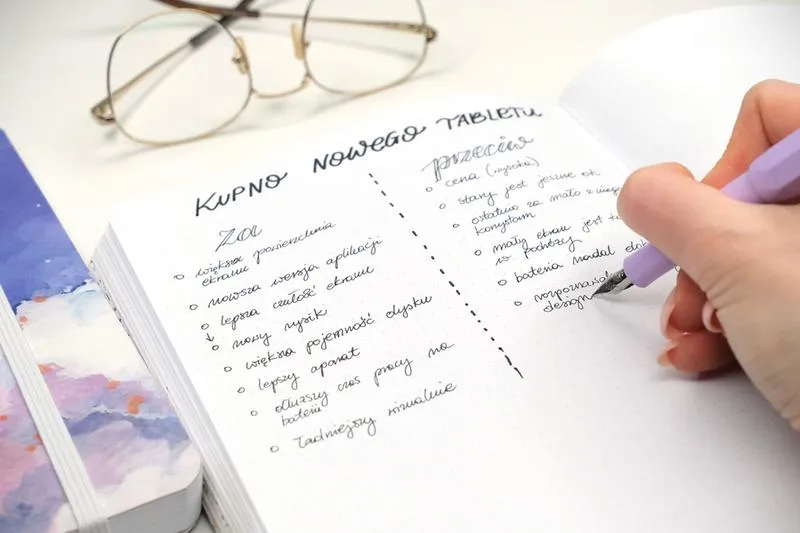 KUPNO NOWEGO TABLETU
Za
większa powierzchnia
ekranu
nowsza wersja aplikacji
lepsza czułość ekranu
↓
nowy rysik
większa pojemność dysku
lepszy aparat
dłuższy czas pracy na
baterii
ładniejszy wizualnie
przeciw
cena (wysoka)
stary jest jeszcze ok
ostatnio za mało z niego
korzystam
mały ekran jest
w podróży
bateria nadal
design